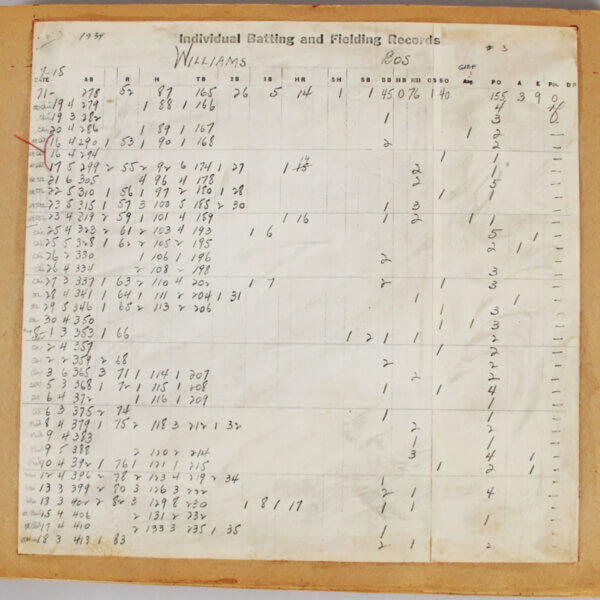 1939
Individual Batting and Fielding Records
WILLIAMS BOS # 3
7-15
DATE AB R H TB 2B 3B HR SH SB BB HB RBI CS SO GIDP PO A E POS. DP
71- 278 52 87 165 26 5 14 1 1 45 0 76 1 40 155 3 9 0
19 4 279 1 88 1 166 4
19 3 282 1 3
20 4 286 1 89 1 167 1 2
16 4 290 1 53 1 90 1 168 2 2
16 4 294 1 1
17 5 299 2 55 2 92 6 174 1 27 1 15 2 1
21 6 305 4 96 4 178 2 5
22 5 310 1 56 1 97 2 180 1 28 1 1
23 5 315 1 57 3 100 5 185 2 30 1 3
23 4 319 2 59 1 101 4 189 1 16 1 2 1 1
25 4 323 2 61 2 103 4 193 1 6 5 1
25 5 328 1 62 2 105 2 195 2 1
26 2 330 1 106 1 196 2
26 4 334 2 108 2 198 3
27 3 337 1 63 2 110 4 202 1 7 2 1 3
28 4 341 1 64 1 111 2 204 1 31 1 1
29 5 346 1 65 2 113 2 206 1 3
30 4 350 1 3
8-1 3 353 1 66 1 2 1 1 2
2 4 357 1 2
2 2 359 2 68 2 2
3 6 365 3 71 1 114 1 207 2 2
5 3 368 1 72 1 115 1 208 1 1 4
6 4 372 1 116 1 209 1
6 3 375 2 74 1
8 4 379 1 75 2 118 3 212 1 32 2 2
9 4 383 1 1
9 5 388 2 120 2 214 3 4 1
10 4 392 1 76 1 121 1 215 1 2 1
12 4 396 2 78 2 123 4 219 2 34 1
13 3 399 2 80 3 126 3 222 2 1 4
13 3 402 2 82 3 129 8 230 1 8 1 17 1 1
15 4 406 2 131 2 232 1
17 4 410 2 133 3 235 1 35 1
18 3 413 1 83 2 1 2